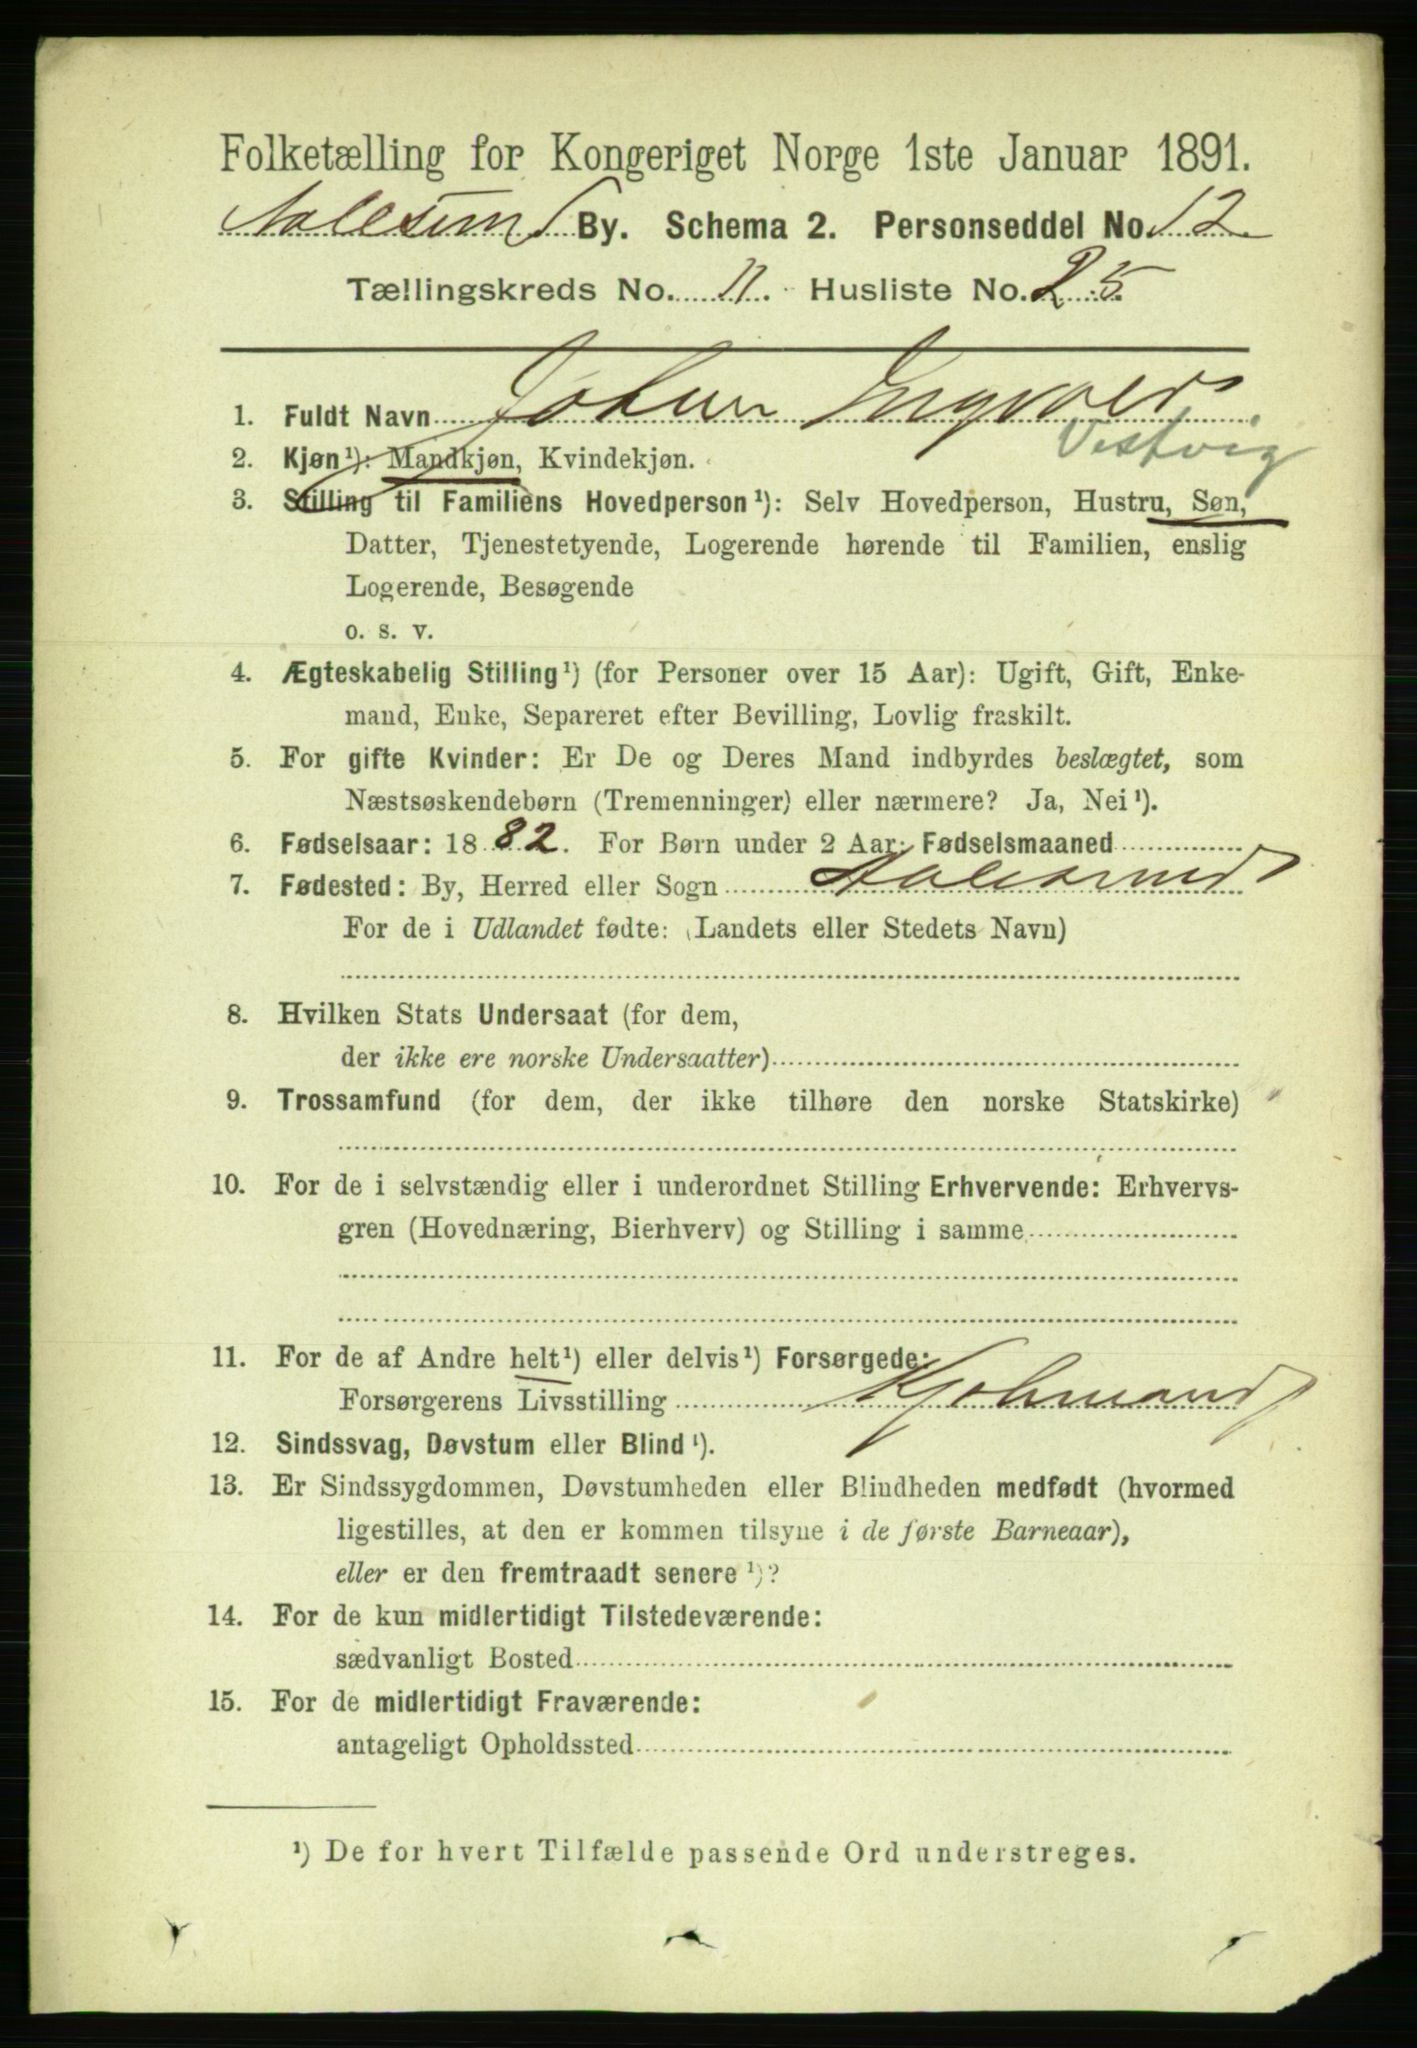 Folketælling for Kongeriget Norge 1ste Januar 1891.
Aalesund By. Schema 2. Personseddel No. 12
Tællingskreds No. 11. Husliste No. 25
1. Fuldt Navn Johan Ingvald
Vestvig
2. Kjøn¹): Mandkjøn, Kvindekjøn.
3. Stilling til Familiens Hovedperson¹): Selv Hovedperson, Hustru, Søn,
Datter, Tjenestetyende, Logerende hørende til Familien, enslig
Logerende, Besøgende
o. s. v.
4. Ægteskabelig Stilling¹) (for Personer over 15 Aar): Ugift, Gift, Enke-
mand, Enke, Separeret efter Bevilling, Lovlig fraskilt.
5. For gifte Kvinder: Er De og Deres Mand indbyrdes beslægtet, som
Næstsøskendebørn (Tremenninger) eller nærmere? Ja, Nei¹).
6. Fødselsaar: 1882. For Børn under 2 Aar: Fødselsmaaned
7. Fødested: By, Herred eller Sogn Aalesund
For de i Udlandet fødte: (Landets eller Stedets Navn)
8. Hvilken Stats Undersaat (for dem,
der ikke ere norske Undersaatter)
9. Trossamfund (for dem, der ikke tilhøre den norske Statskirke)
10. For de i selvstændig eller i underordnet Stilling Erhvervende: Erhvervs-
gren (Hovednæring, Bierhverv) og Stilling i samme
11. For de af Andre helt¹) eller delvis¹) Forsørgede:
Forsørgerens Livsstilling Kjøbmand
12. Sindssvag, Døvstum eller Blind¹).
13. Er Sindssygdommen, Døvstumheden eller Blindheden medfødt (hvormed
ligestilles, at den er kommen tilsyne i de første Barneaar),
eller er den fremtraadt senere¹)?
14. For de kun midlertidigt Tilstedeværende:
sædvanligt Bosted
15. For de midlertidigt Fraværende:
antageligt Opholdssted
¹) De for hvert Tilfælde passende Ord understreges.